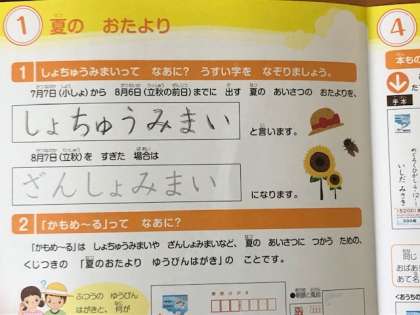 1 夏の おたより
1 しょちゅうみまいって なあに? うすい字を なぞりましょう。
7月7日(小しょ)から 8月6日(立秋の前日)までに 出す 夏の あいさつの おたよりを、
しょちゅうみまい と言います。
8月7日(立秋)を すぎた 場合は
ざんしょみまい になります。
2 「かもめ〜る」って なあに?
「かもめ〜る」は しょちゅうみまいや ざんしょみまいなど、夏の あいさつに つかう ための、
くじつきの 「夏のおたより ゆうびんはがき」の ことです。
ふつうの ゆうびん
はがきと、何が
4
本もの
手本